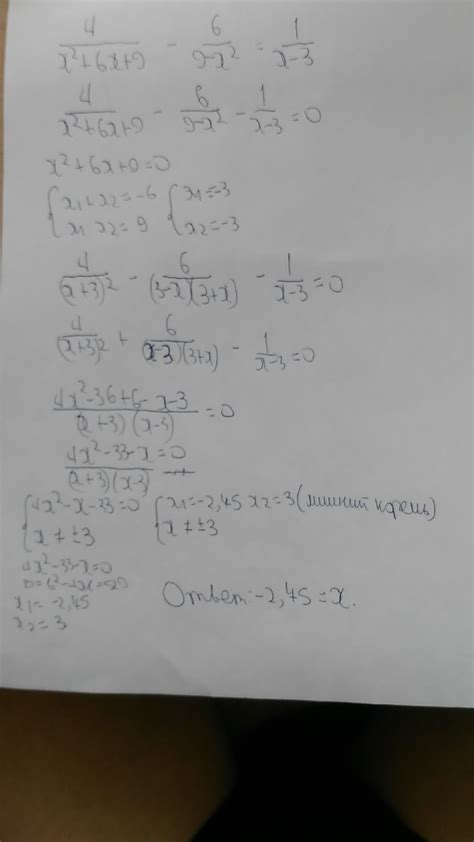 4/(x²+6x+9) - 6/(9-x²) = 1/(x-3)
4/(x²+6x+9) - 6/(9-x²) - 1/(x-3) = 0
x²+6x+9=0
{x1+x2=-6 {x1=-3
{x1 x2=9 {x2=-3
4/(x+3)² - 6/((3-x)(3+x)) - 1/(x-3) = 0
4/(x+3)² + 6/((x-3)(3+x)) - 1/(x-3) = 0
(4x²-36+6-x-3)/((x+3)(x-3)) = 0
(4x²-33-x=0)/((x+3)(x-3))
{4x²-x-33=0 {x1=-2,45 x2=3 (лишний корень)
{x≠±3 {x≠±3
4x²-33-x=0
D=b²-4ac=529
x1=-2,45
x2=3
Ответ: -2,45=x.